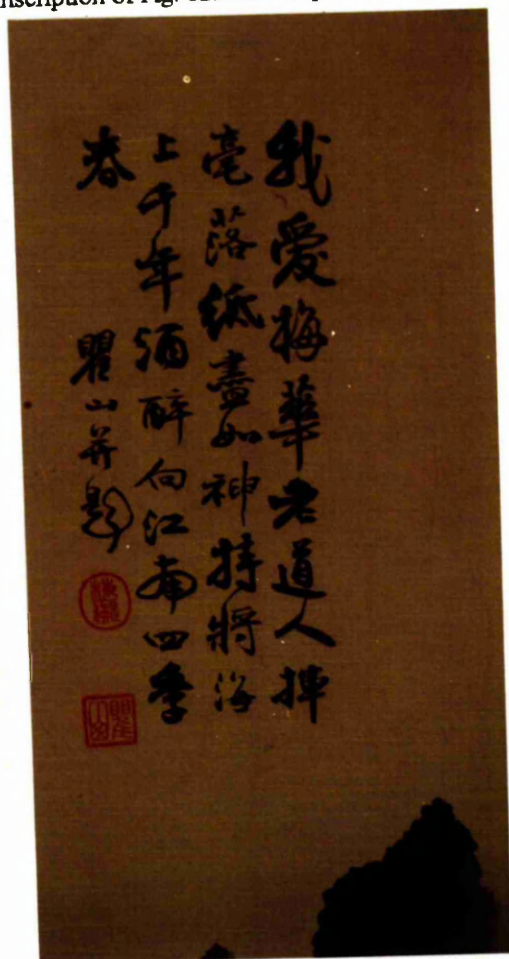 我愛梅華老道人揮
毫落紙盡如神特將海
上千年酒醉向江南四季
春
瞿山并題